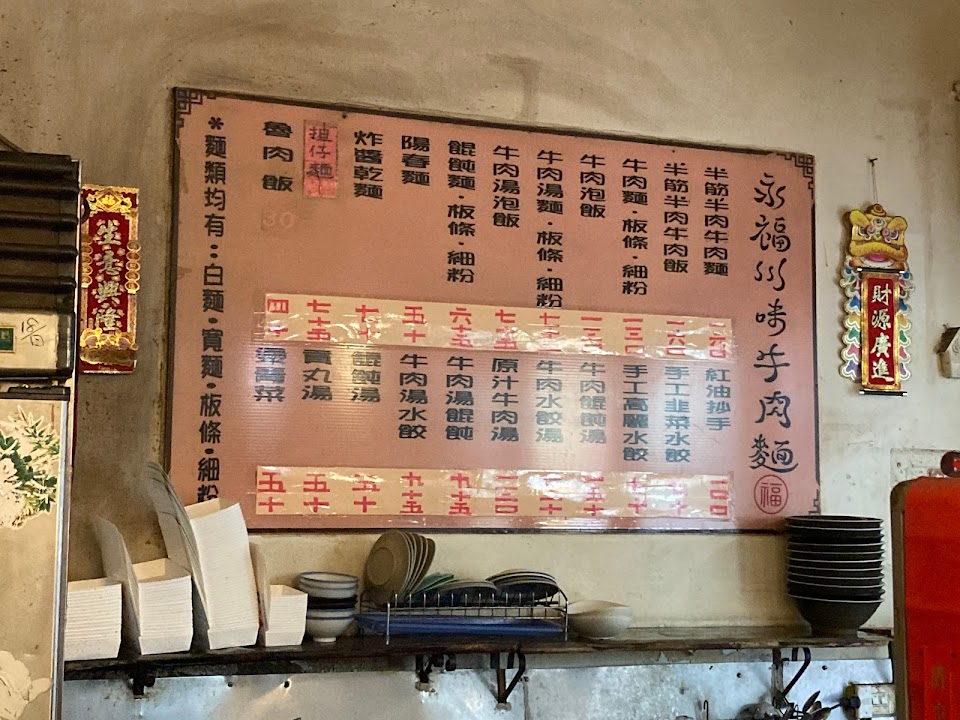 永福川味牛肉麵
福
半筋半肉牛肉麵
半筋半肉牛肉飯
牛肉麵·板條·細粉
牛肉泡飯
牛肉湯麵·板條·細粉
牛肉湯泡飯
餛飩麵·板條·細粉
陽春麵
炸醬乾麵
担仔麵
魯肉飯
30
一六〇
一六〇
一三〇
一三〇
七十五
七十五
六十五
五十
七十
七十五
四十
紅油抄手
手工韭菜水餃
手工高麗水餃
牛肉餛飩湯
牛肉水餃湯
原汁牛肉湯
牛肉湯餛飩
牛肉湯水餃
餛飩湯
貢丸湯
燙青菜
一〇〇
一〇〇
九十五
九十五
五十
五十
五十
*麵類均有:白麵·寬麵·板條·細粉
生意興隆
財源廣進